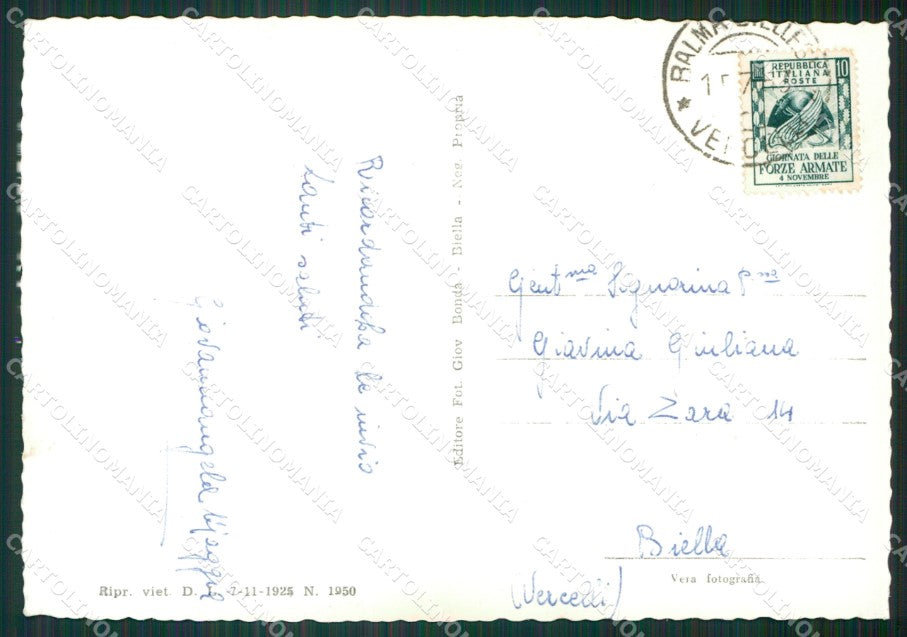 Ricordandola le invio
Tanti saluti
Giovannangela
Editore Fot. Giov Bonda - Biella - Neg. Propria
REPUBBLICA 10
ITALIANA
POSTE
GIORNATA DELLE
FORZE ARMATE
4 NOVEMBRE
Gent.ma Signorina P.na
Giavina Giuliana
Via Zara 14
Biella
(Vercelli)
Vera fotografia.
Ripr. viet. D. 7-11-1925 N. 1950
CARTOLINOMANIA